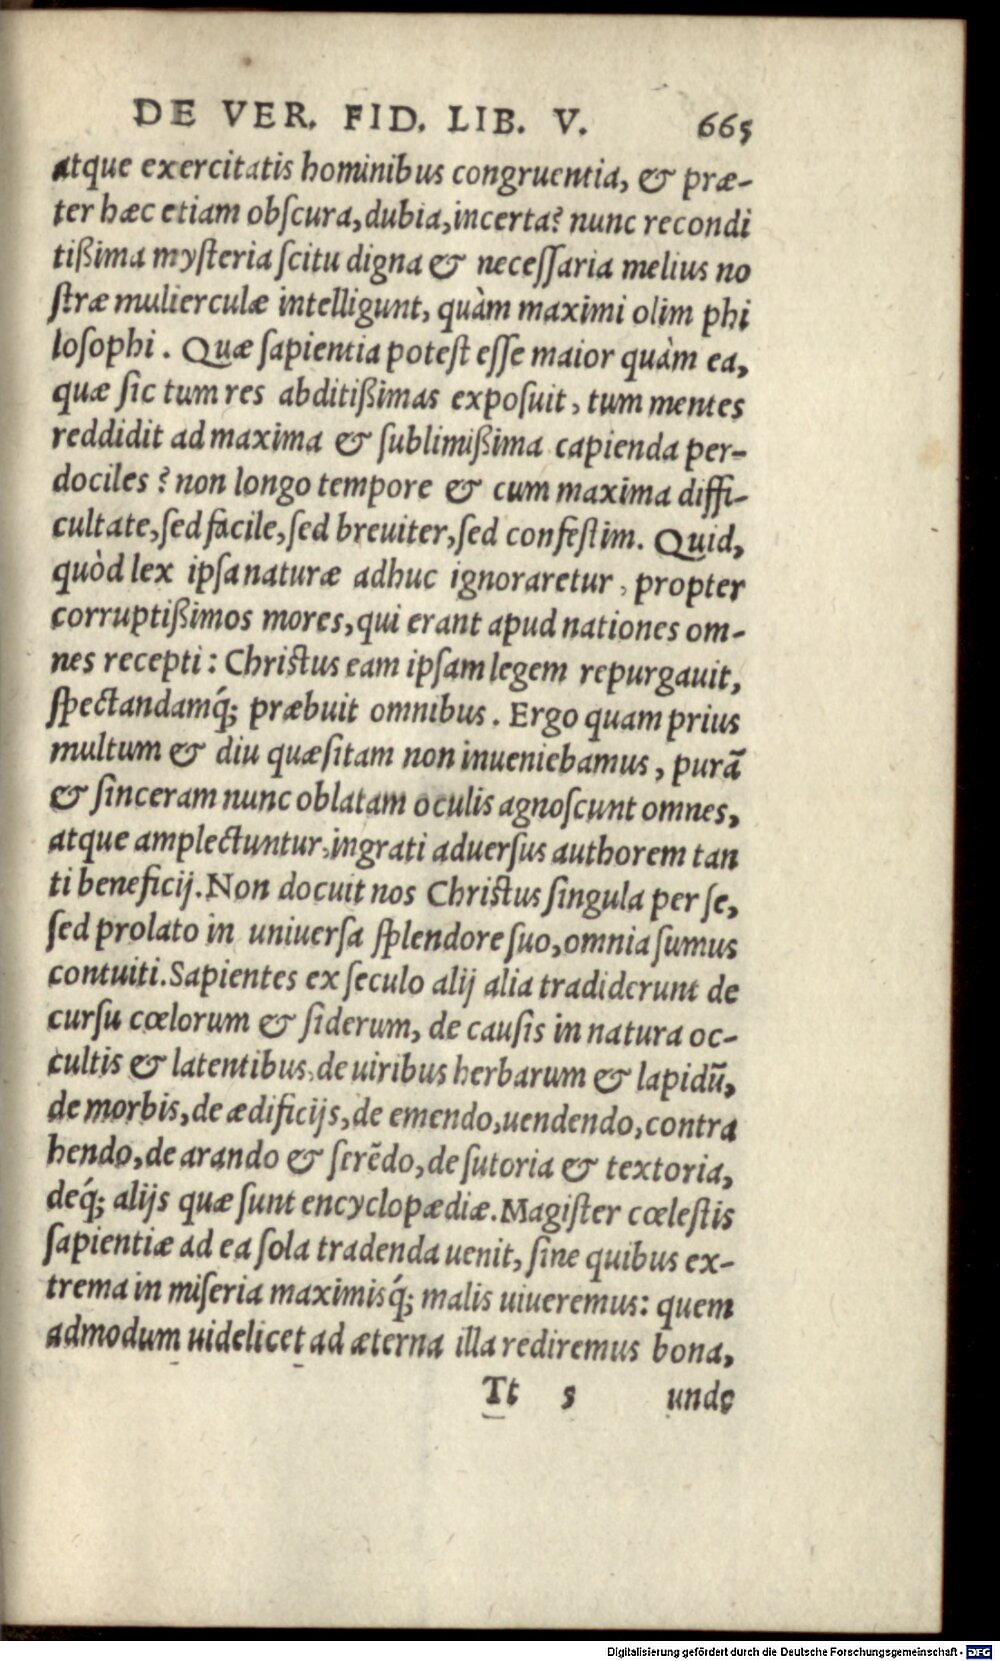 DE VER. FID. LIB. V. 665
atque exercitatis hominibus congruentia, & præ-
ter hæc etiam obſcura, dubia, incerta? nunc recondi
tißima myſteria ſcitu digna & neceſſaria melius no
ſtræ mulierculæ intelligunt, quàm maximi olim phi
loſophi. Quæ ſapientia poteſt eſſe maior quàm ea,
quæ ſic tum res abditißimas expoſuit, tum mentes
reddidit ad maxima & ſublimißima capienda per-
dociles? non longo tempore & cum maxima diffi-
cultate, ſed facile, ſed breuiter, ſed confeſtim. Quid,
quòd lex ipſa naturæ adhuc ignoraretur, propter
corruptißimos mores, qui erant apud nationes om-
nes recepti: Chriſtus eam ipſam legem repurgauit,
ſpectandamq́; præbuit omnibus. Ergo quam prius
multum & diu quæſitam non inueniebamus, purã
& ſinceram nunc oblatam oculis agnoſcunt omnes,
atque amplectuntur, ingrati aduerſus authorem tan
ti beneficij. Non docuit nos Chriſtus ſingula per ſe,
ſed prolato in uniuerſa ſplendore ſuo, omnia ſumus
contuiti. Sapientes ex ſeculo alij alia tradiderunt de
curſu cœlorum & ſiderum, de cauſis in natura oc-
cultis & latentibus, de uiribus herbarum & lapidũ,
de morbis, de ædificijs, de emendo, uendendo, contra
hendo, de arando & ſerẽdo, de ſutoria & textoria,
deq́; alijs quæ ſunt encyclopædiæ. Magiſter cœleſtis
ſapientiæ ad ea ſola tradenda uenit, ſine quibus ex-
trema in miſeria maximisq́; malis uiueremus: quem
admodum uidelicet ad æterna illa rediremus bona,
Tt 5 unde
Digitalisierung gefördert durch die Deutsche Forschungsgemeinschaft - DFG